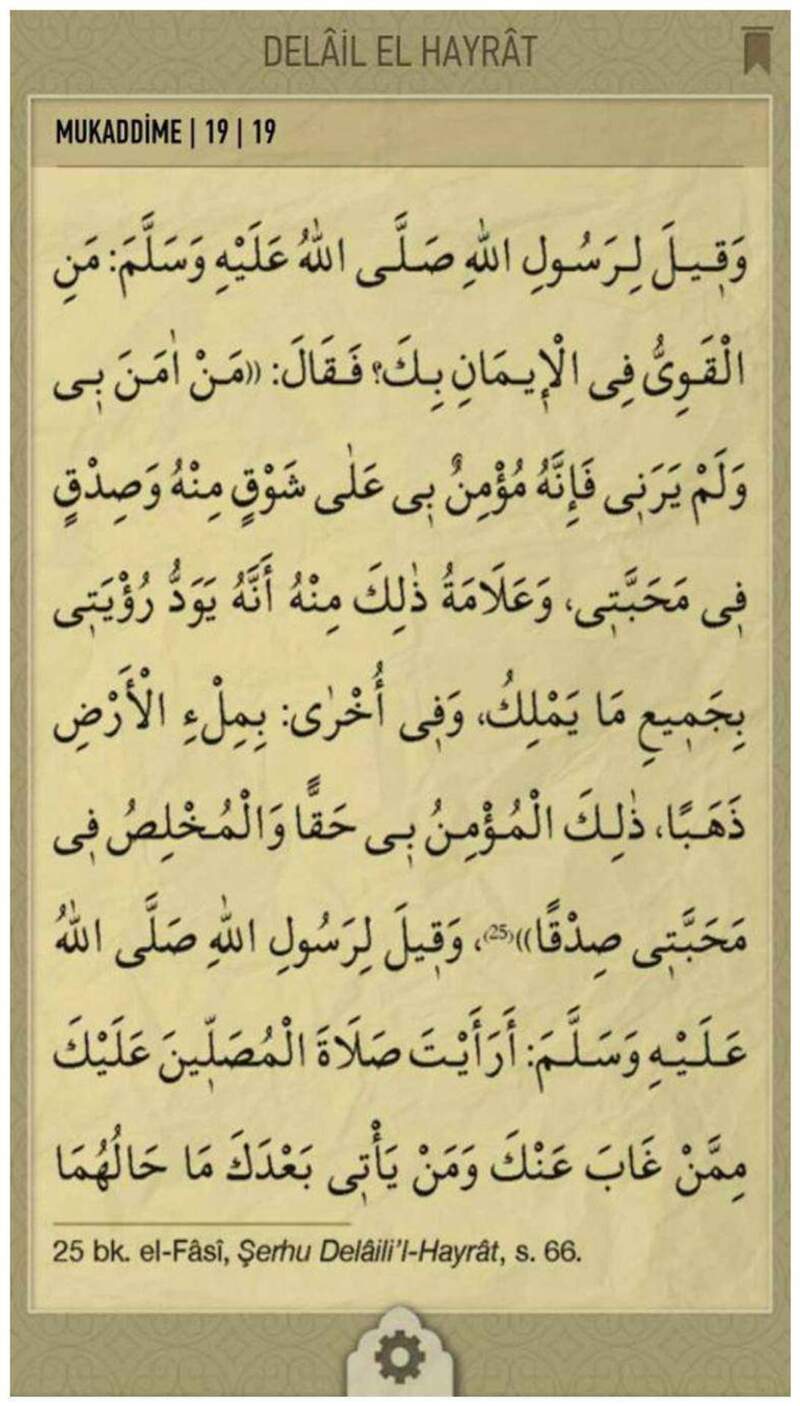 DELÂİL EL HAYRÂT
MUKADDİME | 19 | 19
وَقٖيلَ لِرَسُولِ اللّٰهِ صَلَّى اللّٰهُ عَلَيْهِ وَسَلَّمَ: مَنِ
الْقَوِىُّ فِى الْاِٖيمَانِ بِكَ؟ فَقَالَ: «مَنْ اٰمَنَ بٖى
وَلَمْ يَرَنٖى فَإِنَّهُ مُؤْمِنٌ بٖى عَلٰى شَوْقٍ مِنْهُ وَصِدْقٍ
فٖى مَحَبَّتٖى، وَعَلَامَةُ ذٰلِكَ مِنْهُ أَنَّهُ يَوَدُّ رُؤْيَتٖى
بِجَمٖيعِ مَا يَمْلِكُ، وَفٖى أُخْرٰى: بِمِلْءِ الْأَرْضِ
ذَهَبًا، ذٰلِكَ الْمُؤْمِنُ بٖى حَقًّا وَالْمُخْلِصُ فٖى
مَحَبَّتٖى صِدْقًا»(25)، وَقٖيلَ لِرَسُولِ اللّٰهِ صَلَّى اللّٰهُ
عَلَيْهِ وَسَلَّمَ: أَرَأَيْتَ صَلَاةَ الْمُصَلّٖينَ عَلَيْكَ
مِمَّنْ غَابَ عَنْكَ وَمَنْ يَأْتٖى بَعْدَكَ مَا حَالُهُمَا
25 bk. el-Fâsî, Şerhu Delâili'l-Hayrât, s. 66.